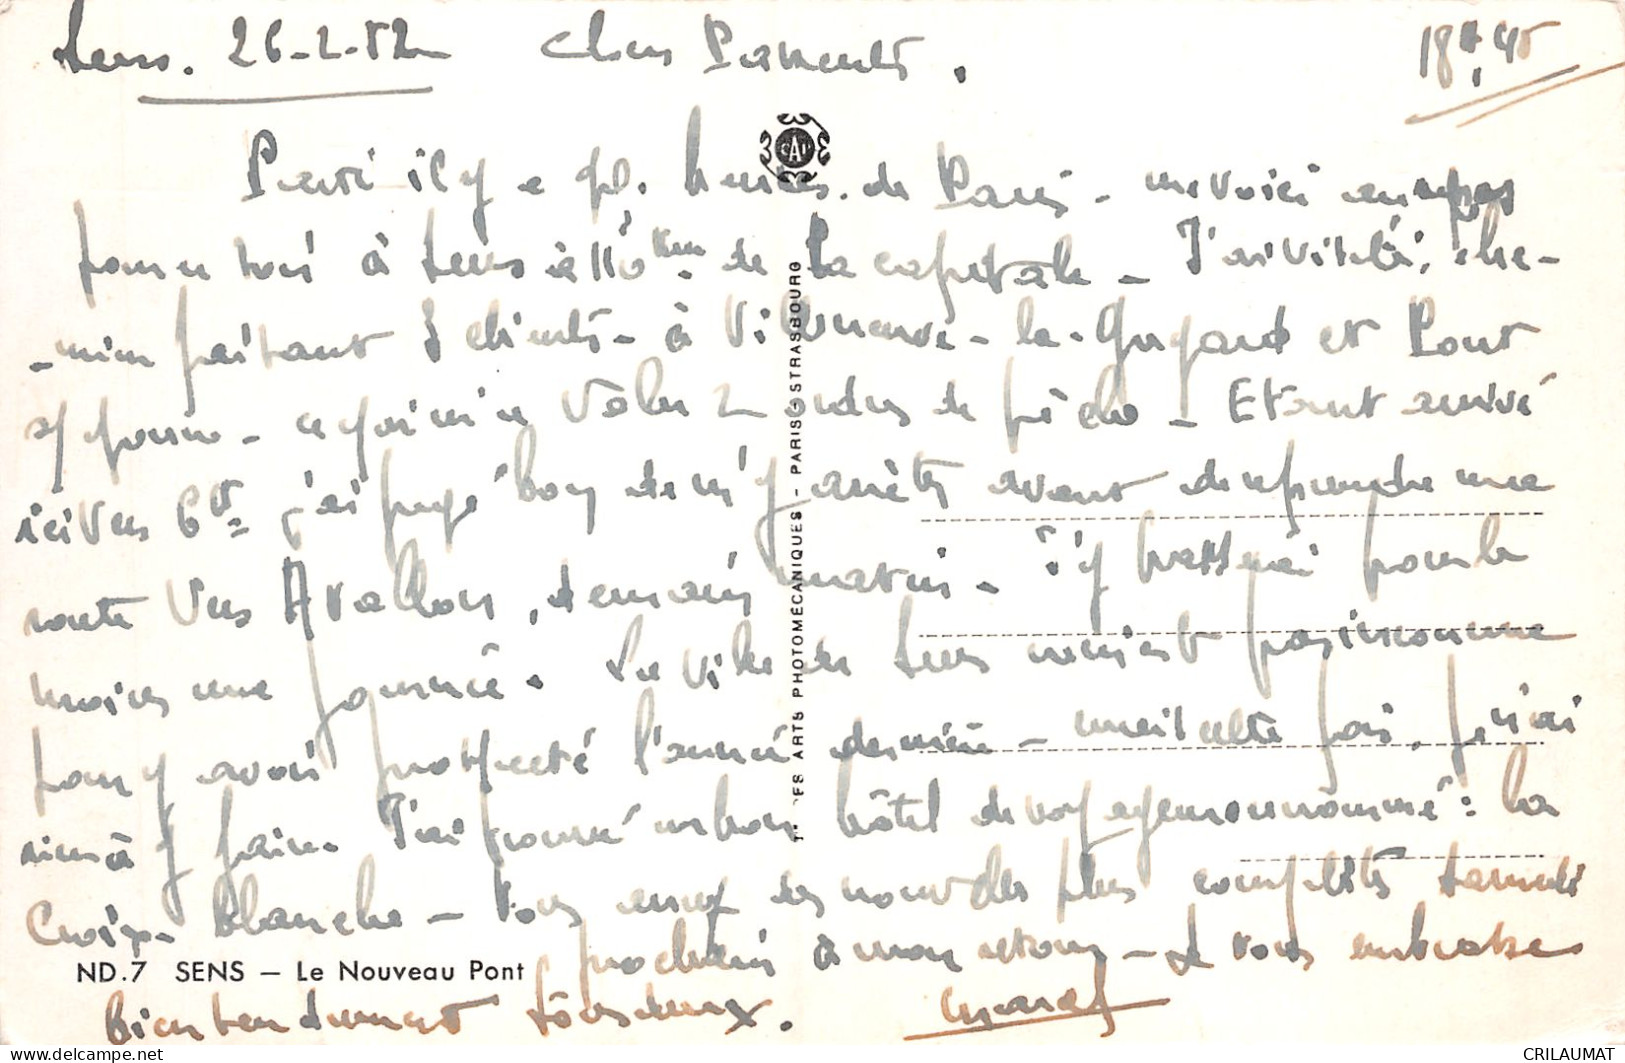 Sens. 26-2-52 Chers Parents. 18h,45
CAP
Parti il y a qq. heures de Paris - me voici
pour à Sens à 110 km de la capitale - J'ai visité, che-
-min faisant 3 clients - à Villeneuve-la-Guyard et Pont
s/ Yonne - ce qui m'a valu 2 ordres de - Etant arrivé
ici vers 6h j'ai jugé bon de m'y arrêter avant de reprendre ma
route vers Avallon, demain matin - J'y passerai pour le
moins une journée. La ville de Sens m'est pas inconnue
pour y avoir prospecté l'année dernière - cette fois, je n'ai
rien à y faire. J'ai trouvé un bon hôtel de voyageurs renommé : la
Croix-Blanche - Vous aurez des nouvelles plus complètes samedi
prochain à mon retour - Je vous embrasse
bien tendrement tous deux.
LES ARTS PHOTOMÉCANIQUES - PARIS-STRASBOURG
ND.7 SENS — Le Nouveau Pont
CRILAUMAT